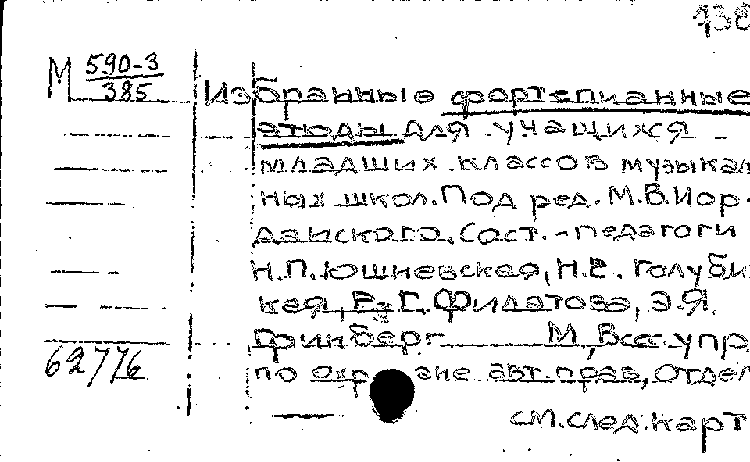 438
М 590-3
385
Избранные фортепианные
этюды для учащихся
младших классов музыкал
ных школ. Под ред. М.В.Иор-
данского. Сост. - педагоги
Н.П.Юшневская, Н.Е. Голуби
кая, Г. Филатова, Э.Я.
Гринберг М, Всес. упр
62776
по авт. прав, Отдел
см. след. карт